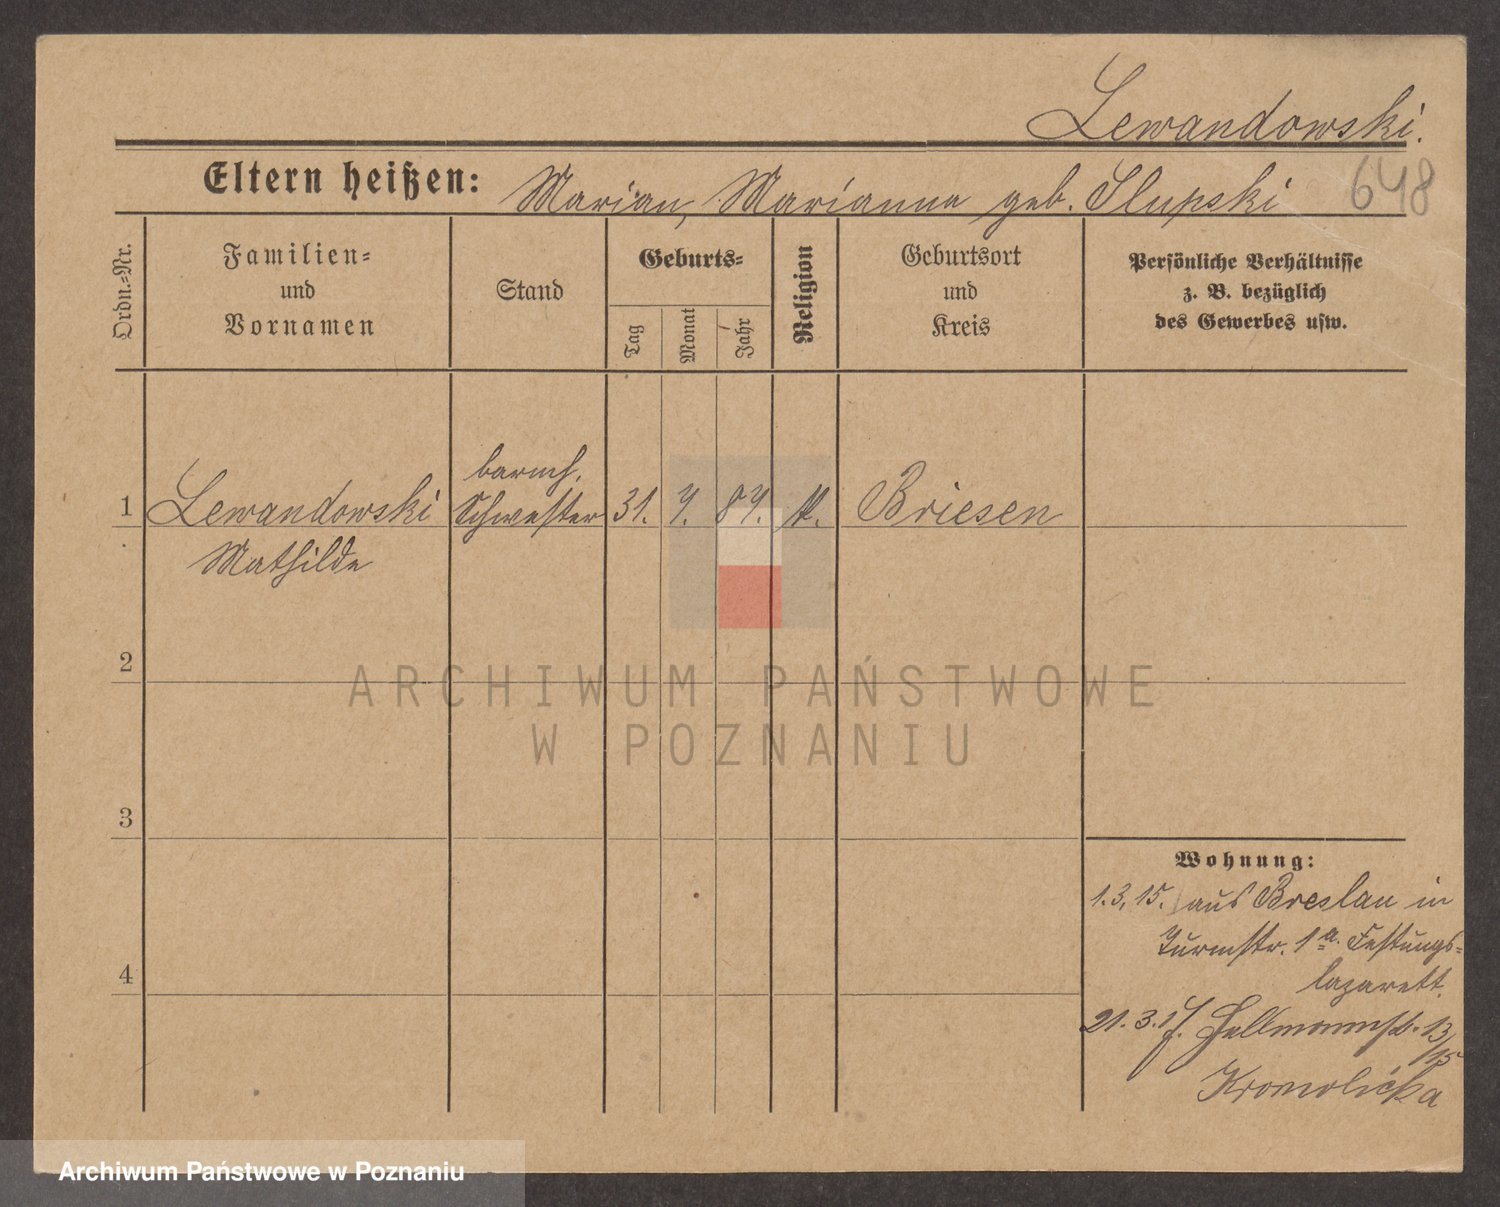 Lewandowski.
Eltern heißen: Marian, Marianna geb. Slupski
648
Ordn.-Nr.
Familien-
und
Vornamen
Stand
Geburts-
Tag
Monat
Jahr
Religion
Geburtsort
und
Kreis
Persönliche Verhältnisse
z. B. bezüglich
des Gewerbes usw.
barmh.
1 Lewandowski Schwester 31. 7. 87. k. Briesen
Mathilde
2
ARCHIWUM PAŃSTWOWE
W POZNANIU
3
Wohnung:
1.3.15. aus Breslau in
Turmstr. 1a. Festungs-
lazarett.
4
21.3.17. 13/15
Kromolicka
Archiwum Państwowe w Poznaniu